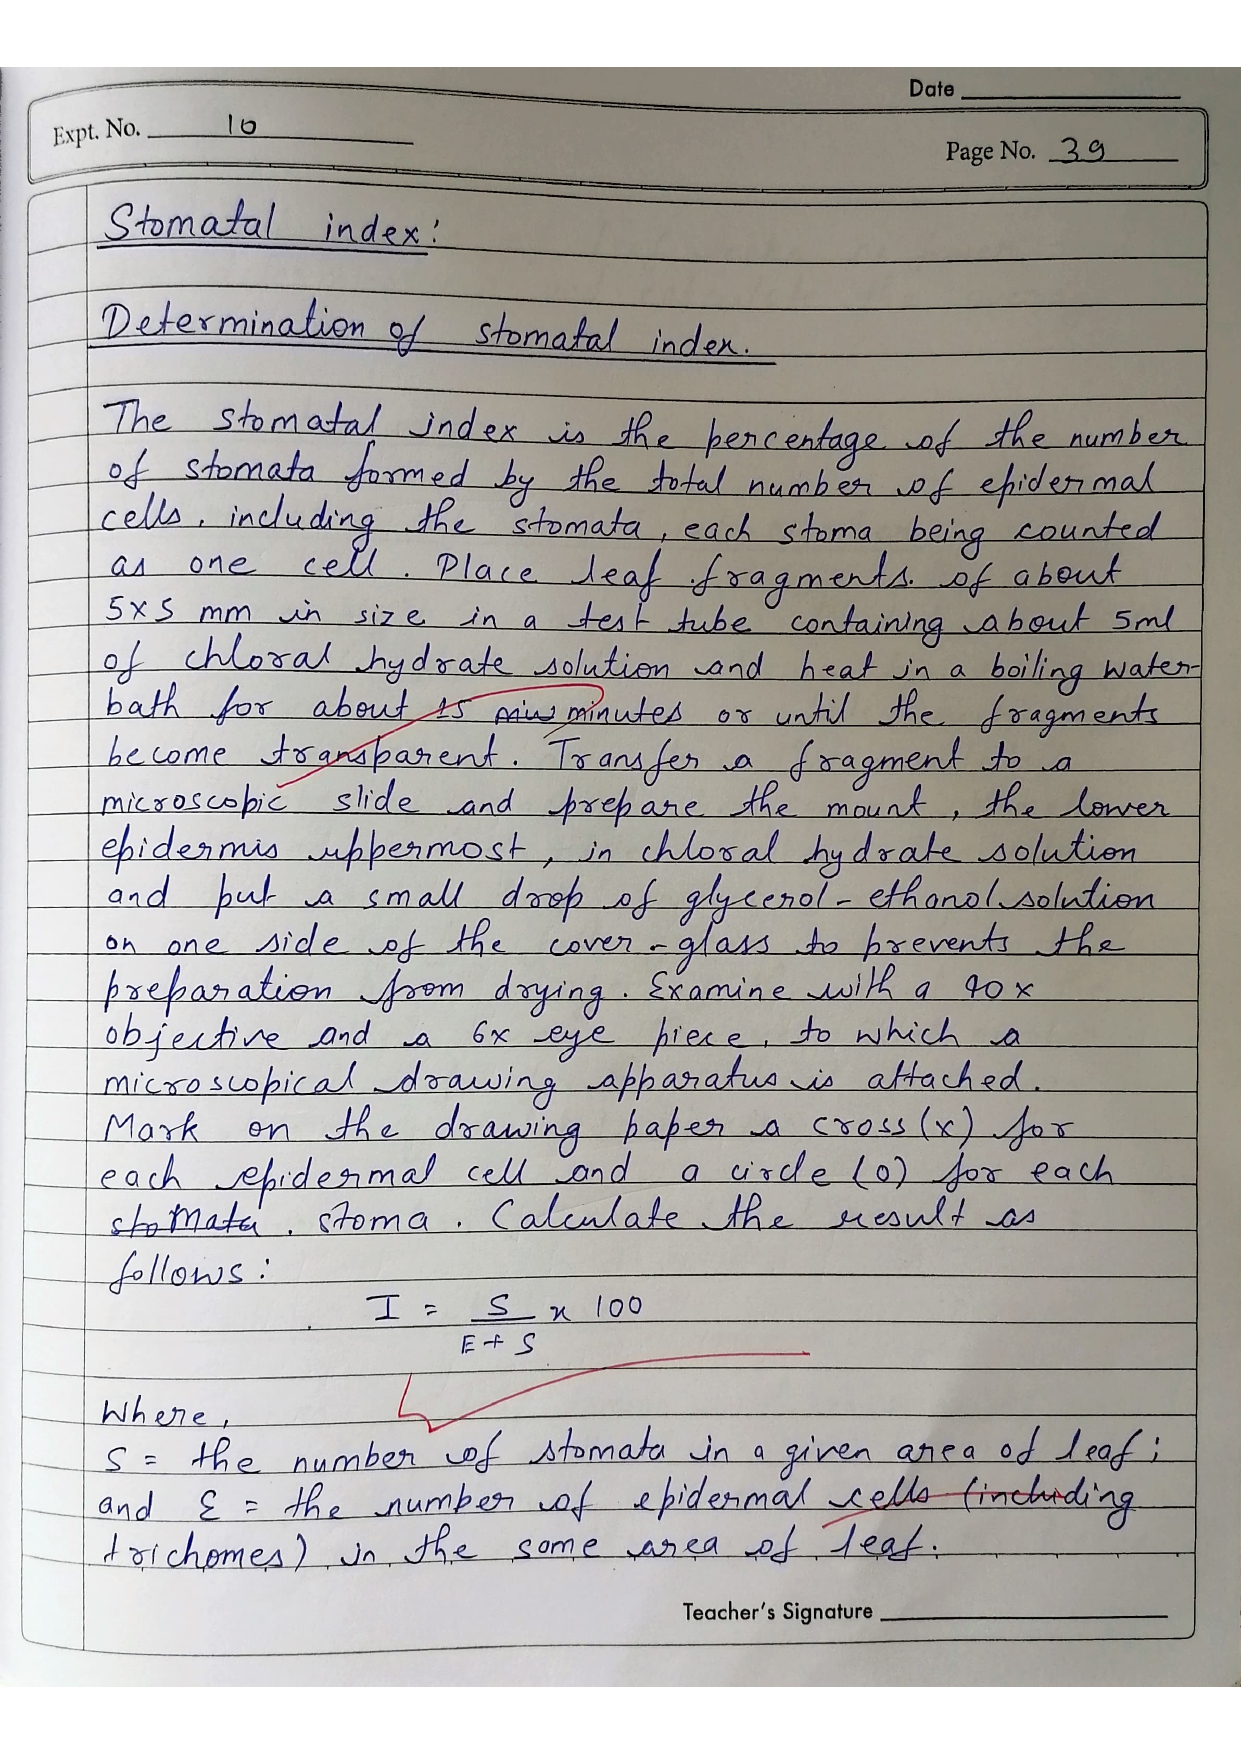 Date
Expt. No. 10
Page No. 39
Stomatal index:
Determination of stomatal index.
The stomatal index is the percentage of the number
of stomata formed by the total number of epidermal
cells, including the stomata, each stoma being counted
as one cell. Place leaf fragments. of about
5x5 mm in size in a test tube containing about 5ml
of chloral hydrate solution and heat in a boiling water-
bath for about 15 minutes or until the fragments
become transparent. Transfer a fragment to a
microscopic slide and prepare the mount, the lower
epidermis uppermost, in chloral hydrate solution
and put a small drop of glycerol-ethanol solution
on one side of the cover-glass to prevents the
preparation from drying. Examine with a 40x
objective and a 6x eye piece, to which a
microscopical drawing apparatus is attached.
Mark on the drawing paper a cross (x) for
each epidermal cell and a circle (0) for each
stomata. stoma. Calculate the result as
follows:
I = S x 100
E + S
Where,
S = the number of stomata in a given area of leaf;
and E = the number of epidermal cells (including
trichomes) in the some area of leaf.
Teacher's Signature